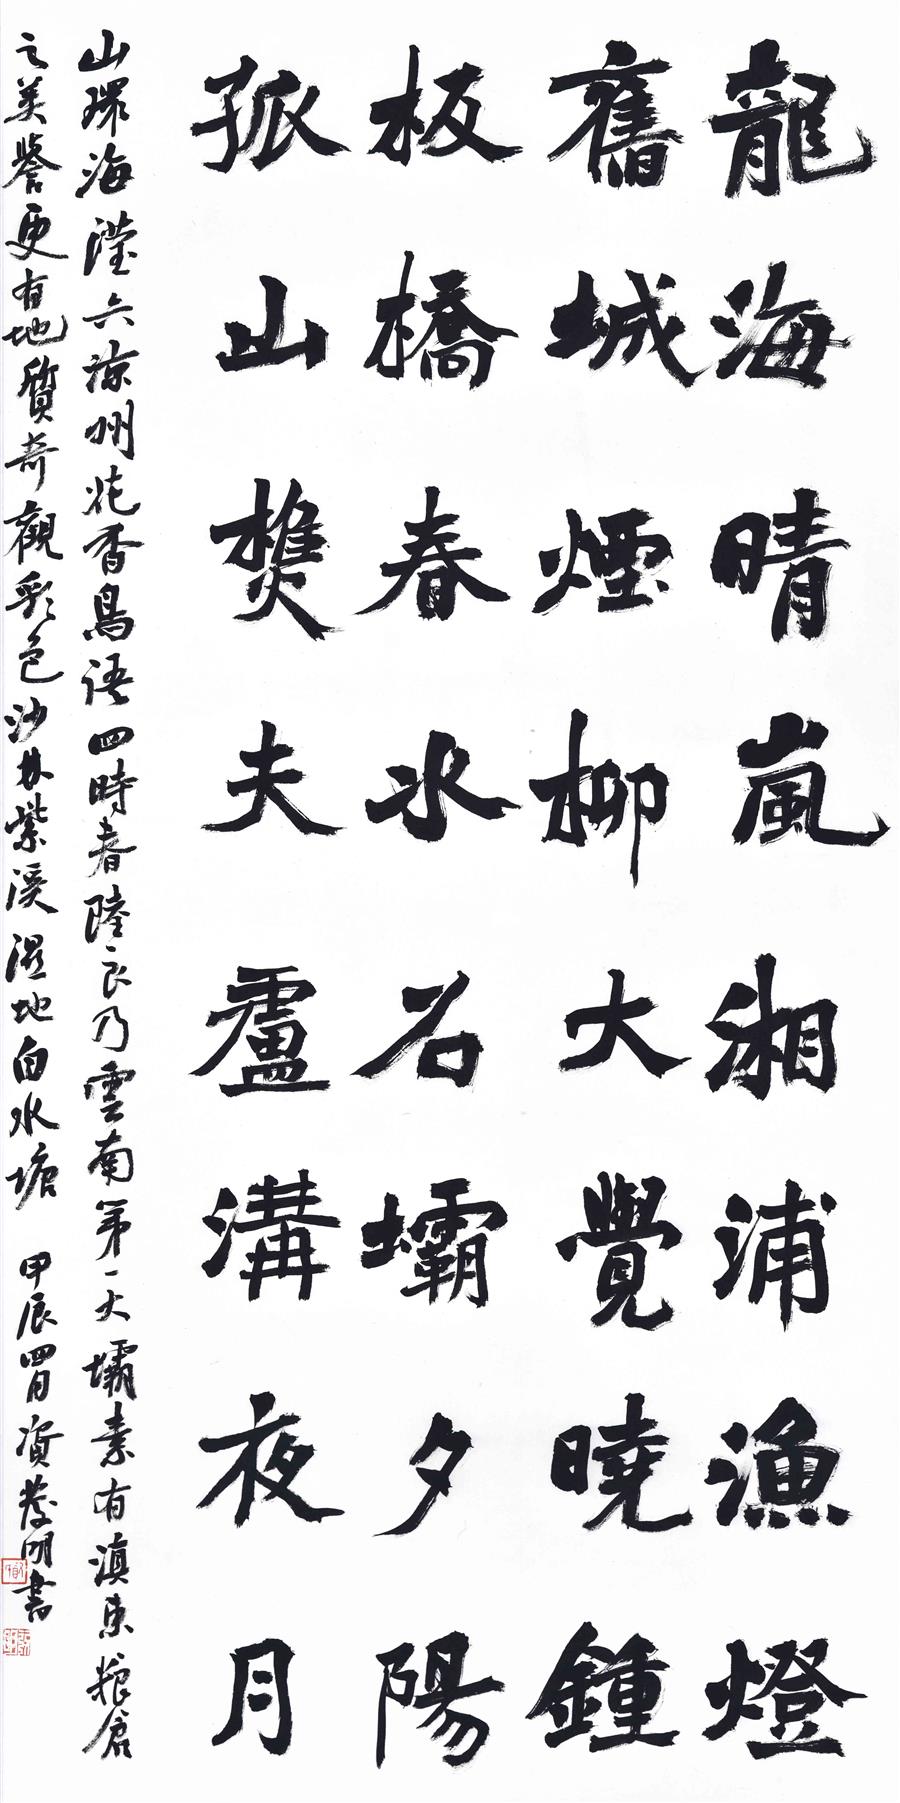 龍海晴嵐湘浦漁燈
舊城煙柳大覺曉鍾
板橋春水石壩夕陽
孤山樵夫盧溝夜月
山環海瀅六涼州花香鳥語四時春陸良乃雲南第一大壩素有滇東粮倉
之美譽更有地質奇觀彩色沙林紫溪濕地白水塘 甲辰四月資發明書